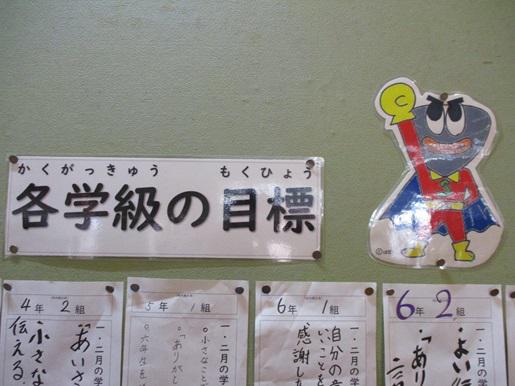 かくがっきゅう もくひょう
各学級の目標
4年 2組
一・二月の学
「あいさ
・小さな
伝える
5年 1組
一・二月の学
○小さなことが
「ありがと
○六年生を
6年 1組
一・二月の学
自分の意
いいことを
感謝した
6年 2
一・二月の学
・よい伝
・「あり